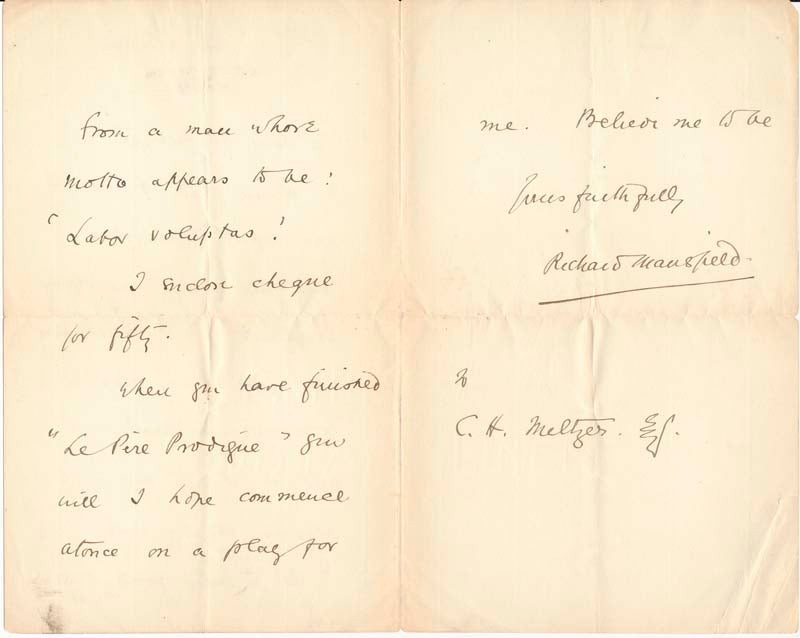 from a man whose
motto appears to be:
"Labor voluptas!
I enclose cheque
for fifty.
when you have finished
"Le Père Prodigue" you
will I hope commence
atonce on a play for
me. Believe me to be
yours faithfully
Richard Mansfield.
to
C. H. Meltzer. Esq.